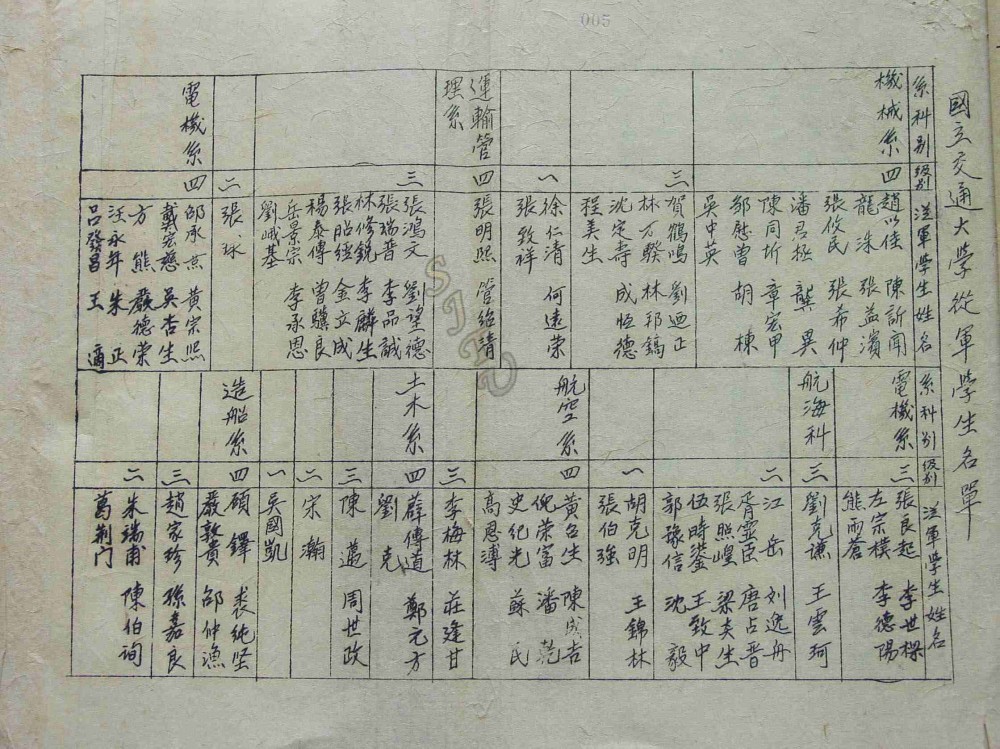 005
國立交通大學從軍學生名單
系科别
级别
從軍學生姓名
機械系
四
趙以佳 陳訢聞
龍洙 張益濱
張攸民 張希仲
潘君極 龔異
陳同圻 章宏甲
鄒慰曾 胡棟
吳中英
三
賀鶴鳴 劉迺正
林万騤 林邦鎬
沈定壽 成恒德
程美生
一
徐仁清 何遠榮
張致祥
運輸管理系
四
張明熙 管紹清
三
張鴻文 劉望德
張瑞普 李品誠
林修銳 李麟生
張昭經 金立成
楊泰傳 曾驥良
岳景宗 李承恩
劉峨基
二
張球
電機系
四
邵承 黄宗熙
戴宏慈 吳杏生
方熊 嚴德榮
汪永年 朱正
呂發昌 王適
系科别
级别
從軍學生姓名
電機系
三
張良起 李世樑
左宗樸 李德陽
熊雨蒼
航海科
三
劉克谦 王雲珂
二
江岳 刘逸舟
胥靈臣 唐占晋
張照煌 梁炎生
伍時鋆 王致中
郭豫信 沈毅
一
胡克明 王錦林
張伯强
航空系
四
黄召生 陳成吉
倪荣富 潘乾
史紀光 蘇民
高恩溥
三
李梅林 莊逢甘
土木系
四
薛傳道 鄭元方
劉克
三
陳邁 周世政
二
宋瀚
一
吳國凱
造船系
四
顧鐸 裘純堅
嚴敦貴 邵仲漁
三
趙家珍 孫嘉良
二
朱瑞甫 陳伯询
葛荆门
SJTU